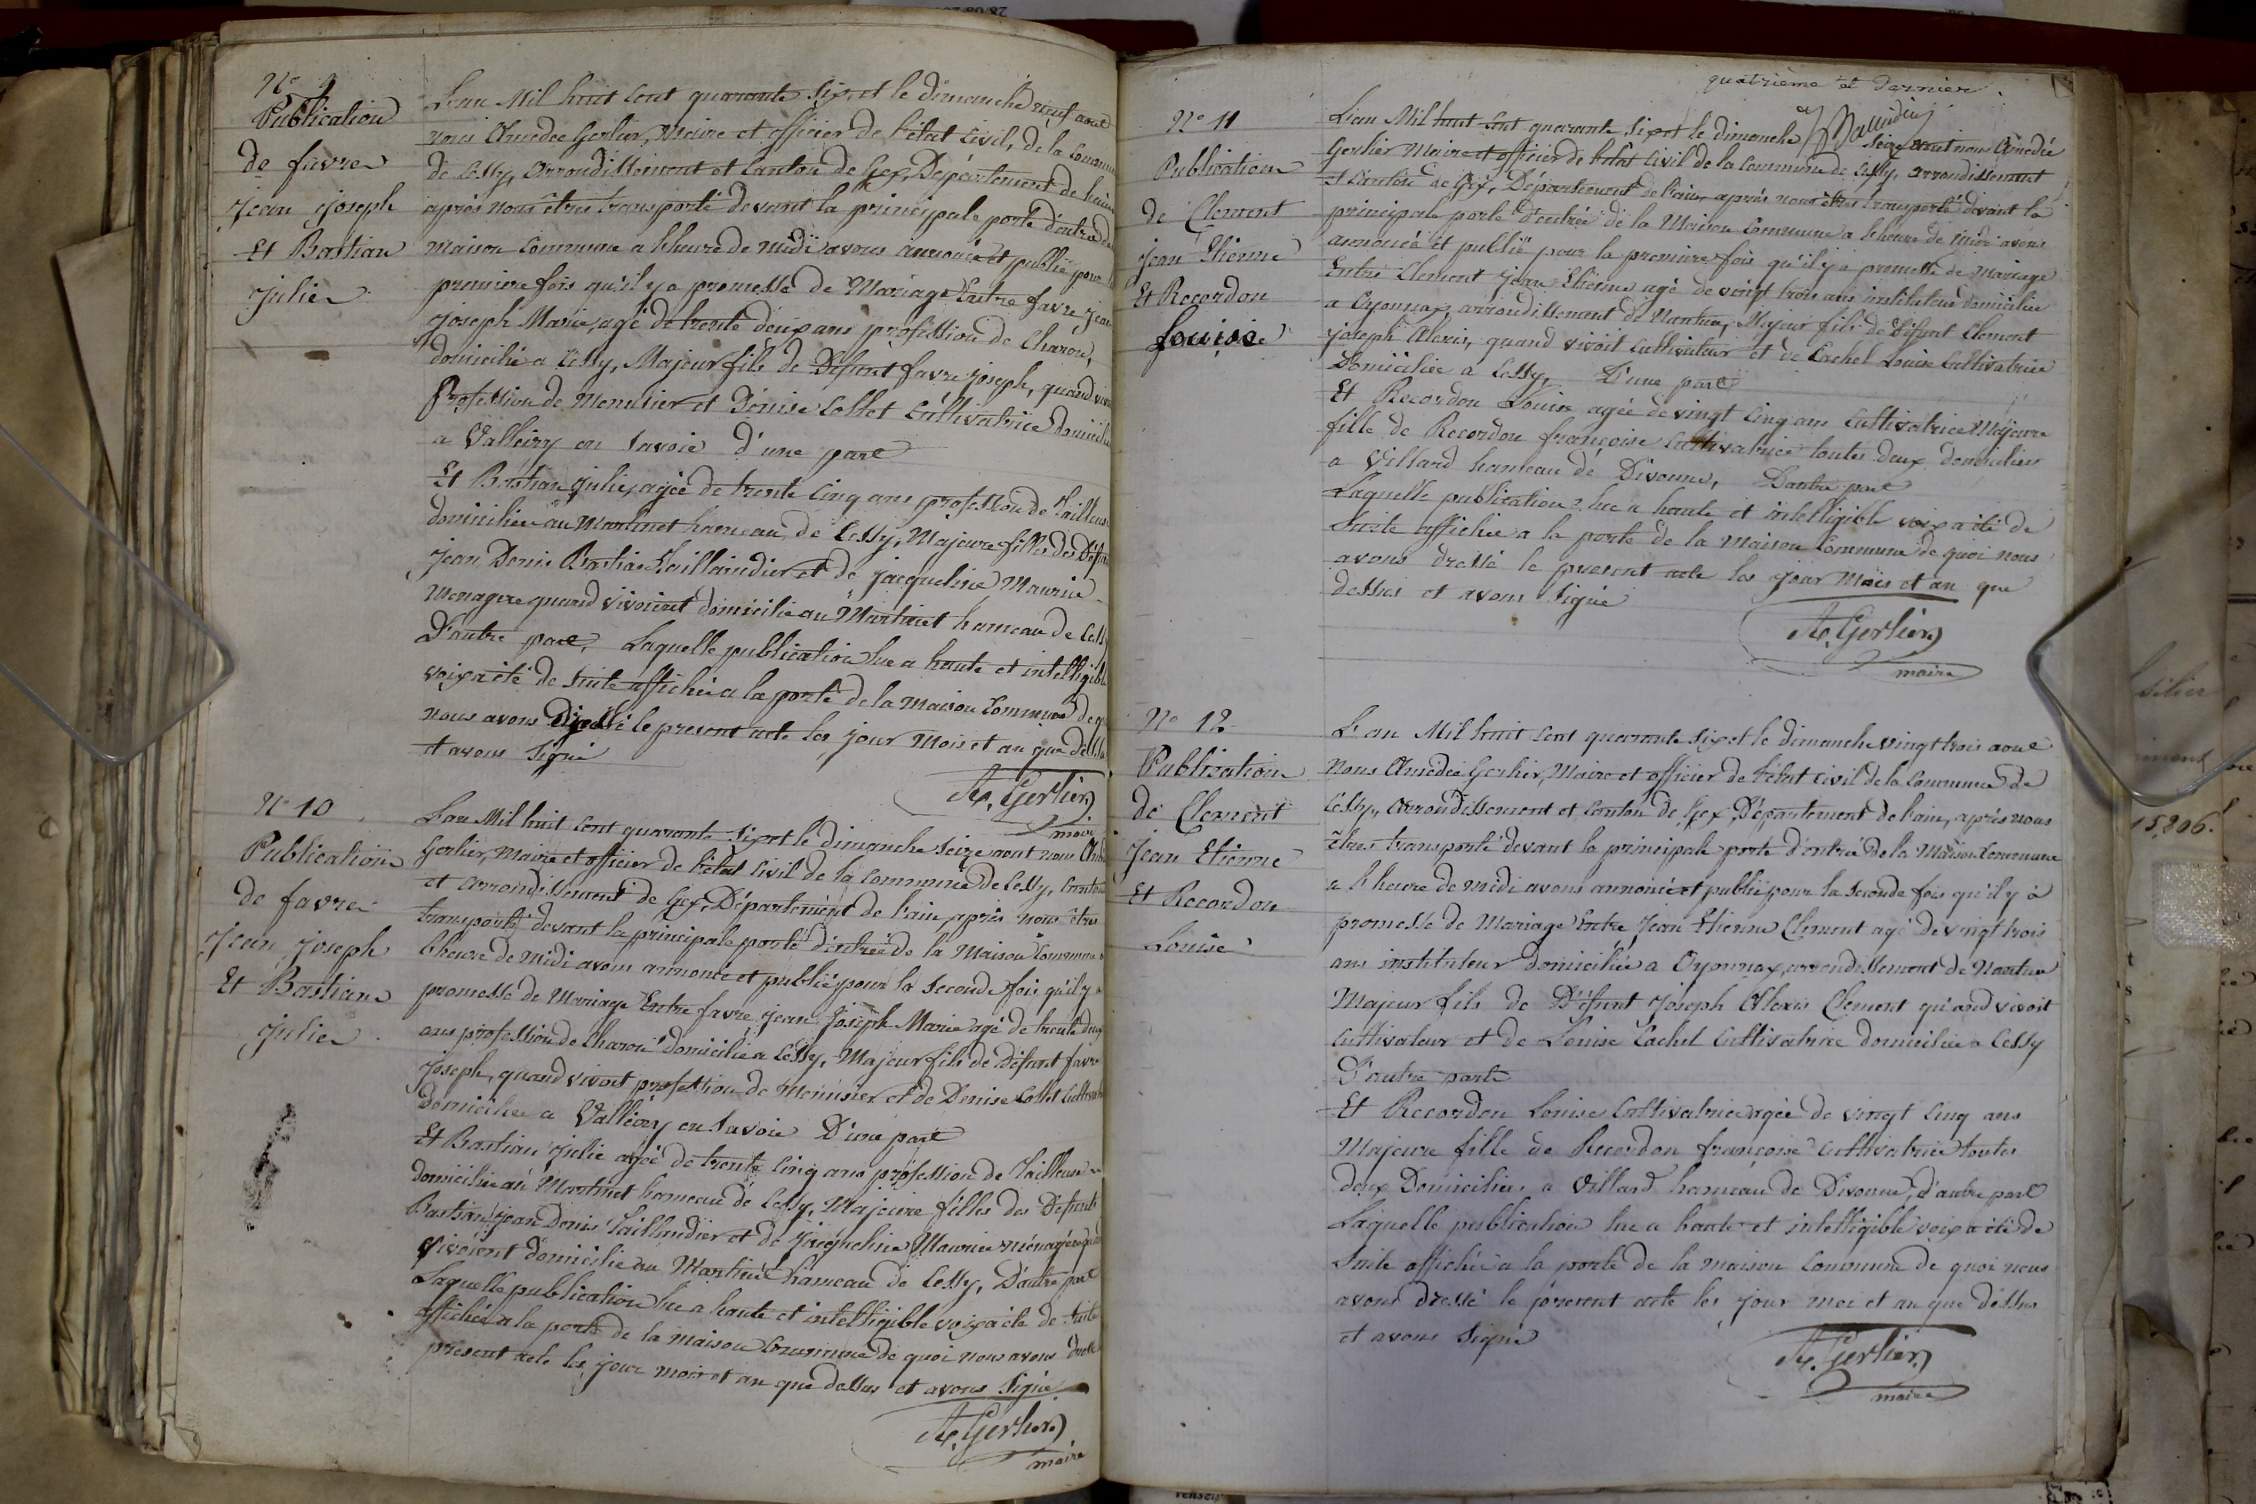 N° 9
Publication
de favre
Jean Joseph
Et Bastian
Julie
L'an Mil huit cent quarante six et le dimanche neuf aout
nous Amédée Gerlier, Maire et officier de l'état Civil, de la Commune
de Cessy, arrondissement et Canton de Gex, Département de l'ain
après nous être transporté devant la principale porte d'entrée de
maison commune a l'heure de midi avons annoncé et publié pour
premiere fois qu'il y a promesse de Mariage Entre favre Jean
Joseph Marie, agé de trente deux ans profession de Charon,
domicilié a Cessy, Majeur fils de Défunt favre Joseph, quand vivoit
Profession de Menusier et Denise Collet Cultivatrice domicilié
a Valleiry en Savoie d'une part
Et Bastian Julie, agée de trente Cinq ans profession de Tailleuse
domiciliée au Martinet hameau de Cessy, Majeure filles des Défunts
Jean Denis Bastian Taillandier et de Jacqueline Maurice
Menagere quand vivoient domicilié au Martinet hameau de Cessy
D'autre part, Laquelle publication lue a haute et intelligible
voix a été de suite affichée a la porte de la maison Commune de quoi
nous avons Dressé le present acte les jour Mois et an que dessus
et avons Signé
A. Gerlier
maire
N° 10
Publication
de favre
Jean Joseph
Et Bastian
Julie
L'an Mil huit cent quarante six et le dimanche Seize aout nous
Gerlier, Maire et officier de l'état Civil de la Commune de Cessy, Canton
et arrondissement de Gex, Département de l'ain, après nous être
transporté devant la principale porte d'entrée de la Maison Commune a
l'heure de midi avons annoncé et publié pour la Seconde fois qu'il y a
promesse de Mariage Entre favre Jean Joseph Marie agé de trente deux
ans profession de Charon domicilié a Cessy, Majeur fils de Défunt favre
Joseph, quand vivoit profession de Menusier et de Denise Collet
domiciliée a Valleiry en Savoie D'une part
Et Bastian Julie agée de trente Cinq ans profession de Tailleuse
domiciliée au Martinet hameau de Cessy, Majeure filles des Defunts
Bastian Jean Denis Taillandier et de Jacqueline Maurice ménagère
vivoient domicilié au Martinet hameau de Cessy, D'autre part
Laquelle publication lue a haute et intelligible voix a été de suite
affichée a la porte de la maison Commune de quoi nous avons dressé
présent acte les jour mois et an que dessus et avons Signé
A. Gerlier
maire
quatrième et dernier
N° 11
Publication
de Clement
Jean Etienne
Et Recordon
Louise
L'an Mil huit cent quarante six et le dimanche Seize aout nous Amédée
Gerlier Maire et officier de l'état Civil de la Commune de Cessy, arrondissement
et Canton de Gex, Département de l'ain, après nous être transporté devant la
principale porte d'entrée de la Maison Commune a l'heure de Midi avons
annoncé et publié pour la premiere fois qu'il y a promesse de Mariage
Entre Clement Jean Etienne agé de vingt trois ans instituteur domicilié
a Oyonnax, arrondissement de Nantua, Majeur fils de Défunt Clement
Joseph Alexis, quand vivoit Cultivateur et de Cachel Louise Cultivatrice
Domiciliée a Cessy, D'une part
Et Recordon Louise agée de vingt Cinq ans Cultivatrice Majeure
fille de Recordon françoise Cultivatrice toutes deux domiciliées
a Villard hameau de Divonne, Dautre part
Laquelle publication lue a haute et intelligible voix a été de
suite affichée a la porte de la Maison Commune de quoi nous
avons dressé le present acte les jour Mois et an que
dessus et avons Signé
A. Gerlier
maire
N° 12
Publication
de Clement
Jean Etienne
Et Recordon
Louise
L'an Mil huit cent quarante six et le dimanche vingt trois aout
Nous Amédée Gerlier, Maire et officier de l'état Civil de la Commune de
Cessy, arrondissement et Canton de Gex, Département de l'ain, après nous
être transporté devant la principale porte d'entrée de la Maison Commune
a l'heure de midi avons annoncé et publié pour la Seconde fois qu'il y a
promesse de Mariage Entre Jean Etienne Clement agé de vingt trois
ans instituteur domiciliée a Oyonnax, arrondissement de Nantua
Majeur fils de Défunt Joseph Alexis Clement quand vivoit
Cultivateur et de Louise Cachel Cultivatrice domiciliée a Cessy
D'autre parte
Et Recordon Louise Cultivatrice agée de vingt Cinq ans
Majeure fille de Recordon françoise Cultivatrice toutes
deux Domiciliées a Villard hameau de Divonne, d'autre part
Laquelle publication lue a haute et intelligible voix a été de
Suite affichée a la porte de la maison Commune de quoi nous
avons dressé le présent acte les jour moi et an que dessus
et avons Signé
A. Gerlier
maire
15,806.